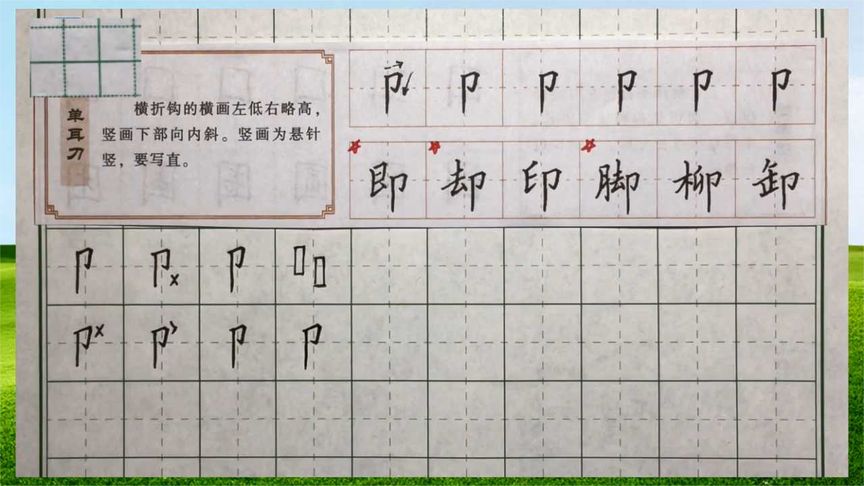 单耳刀
横折钩的横画左低右略高，
竖画下部向内斜。竖画为悬针
竖，要写直。
卩 卩 卩 卩 卩 卩
即 却 印 脚 柳 卸
卩 卩x 卩
卩x 卩 卩 卩